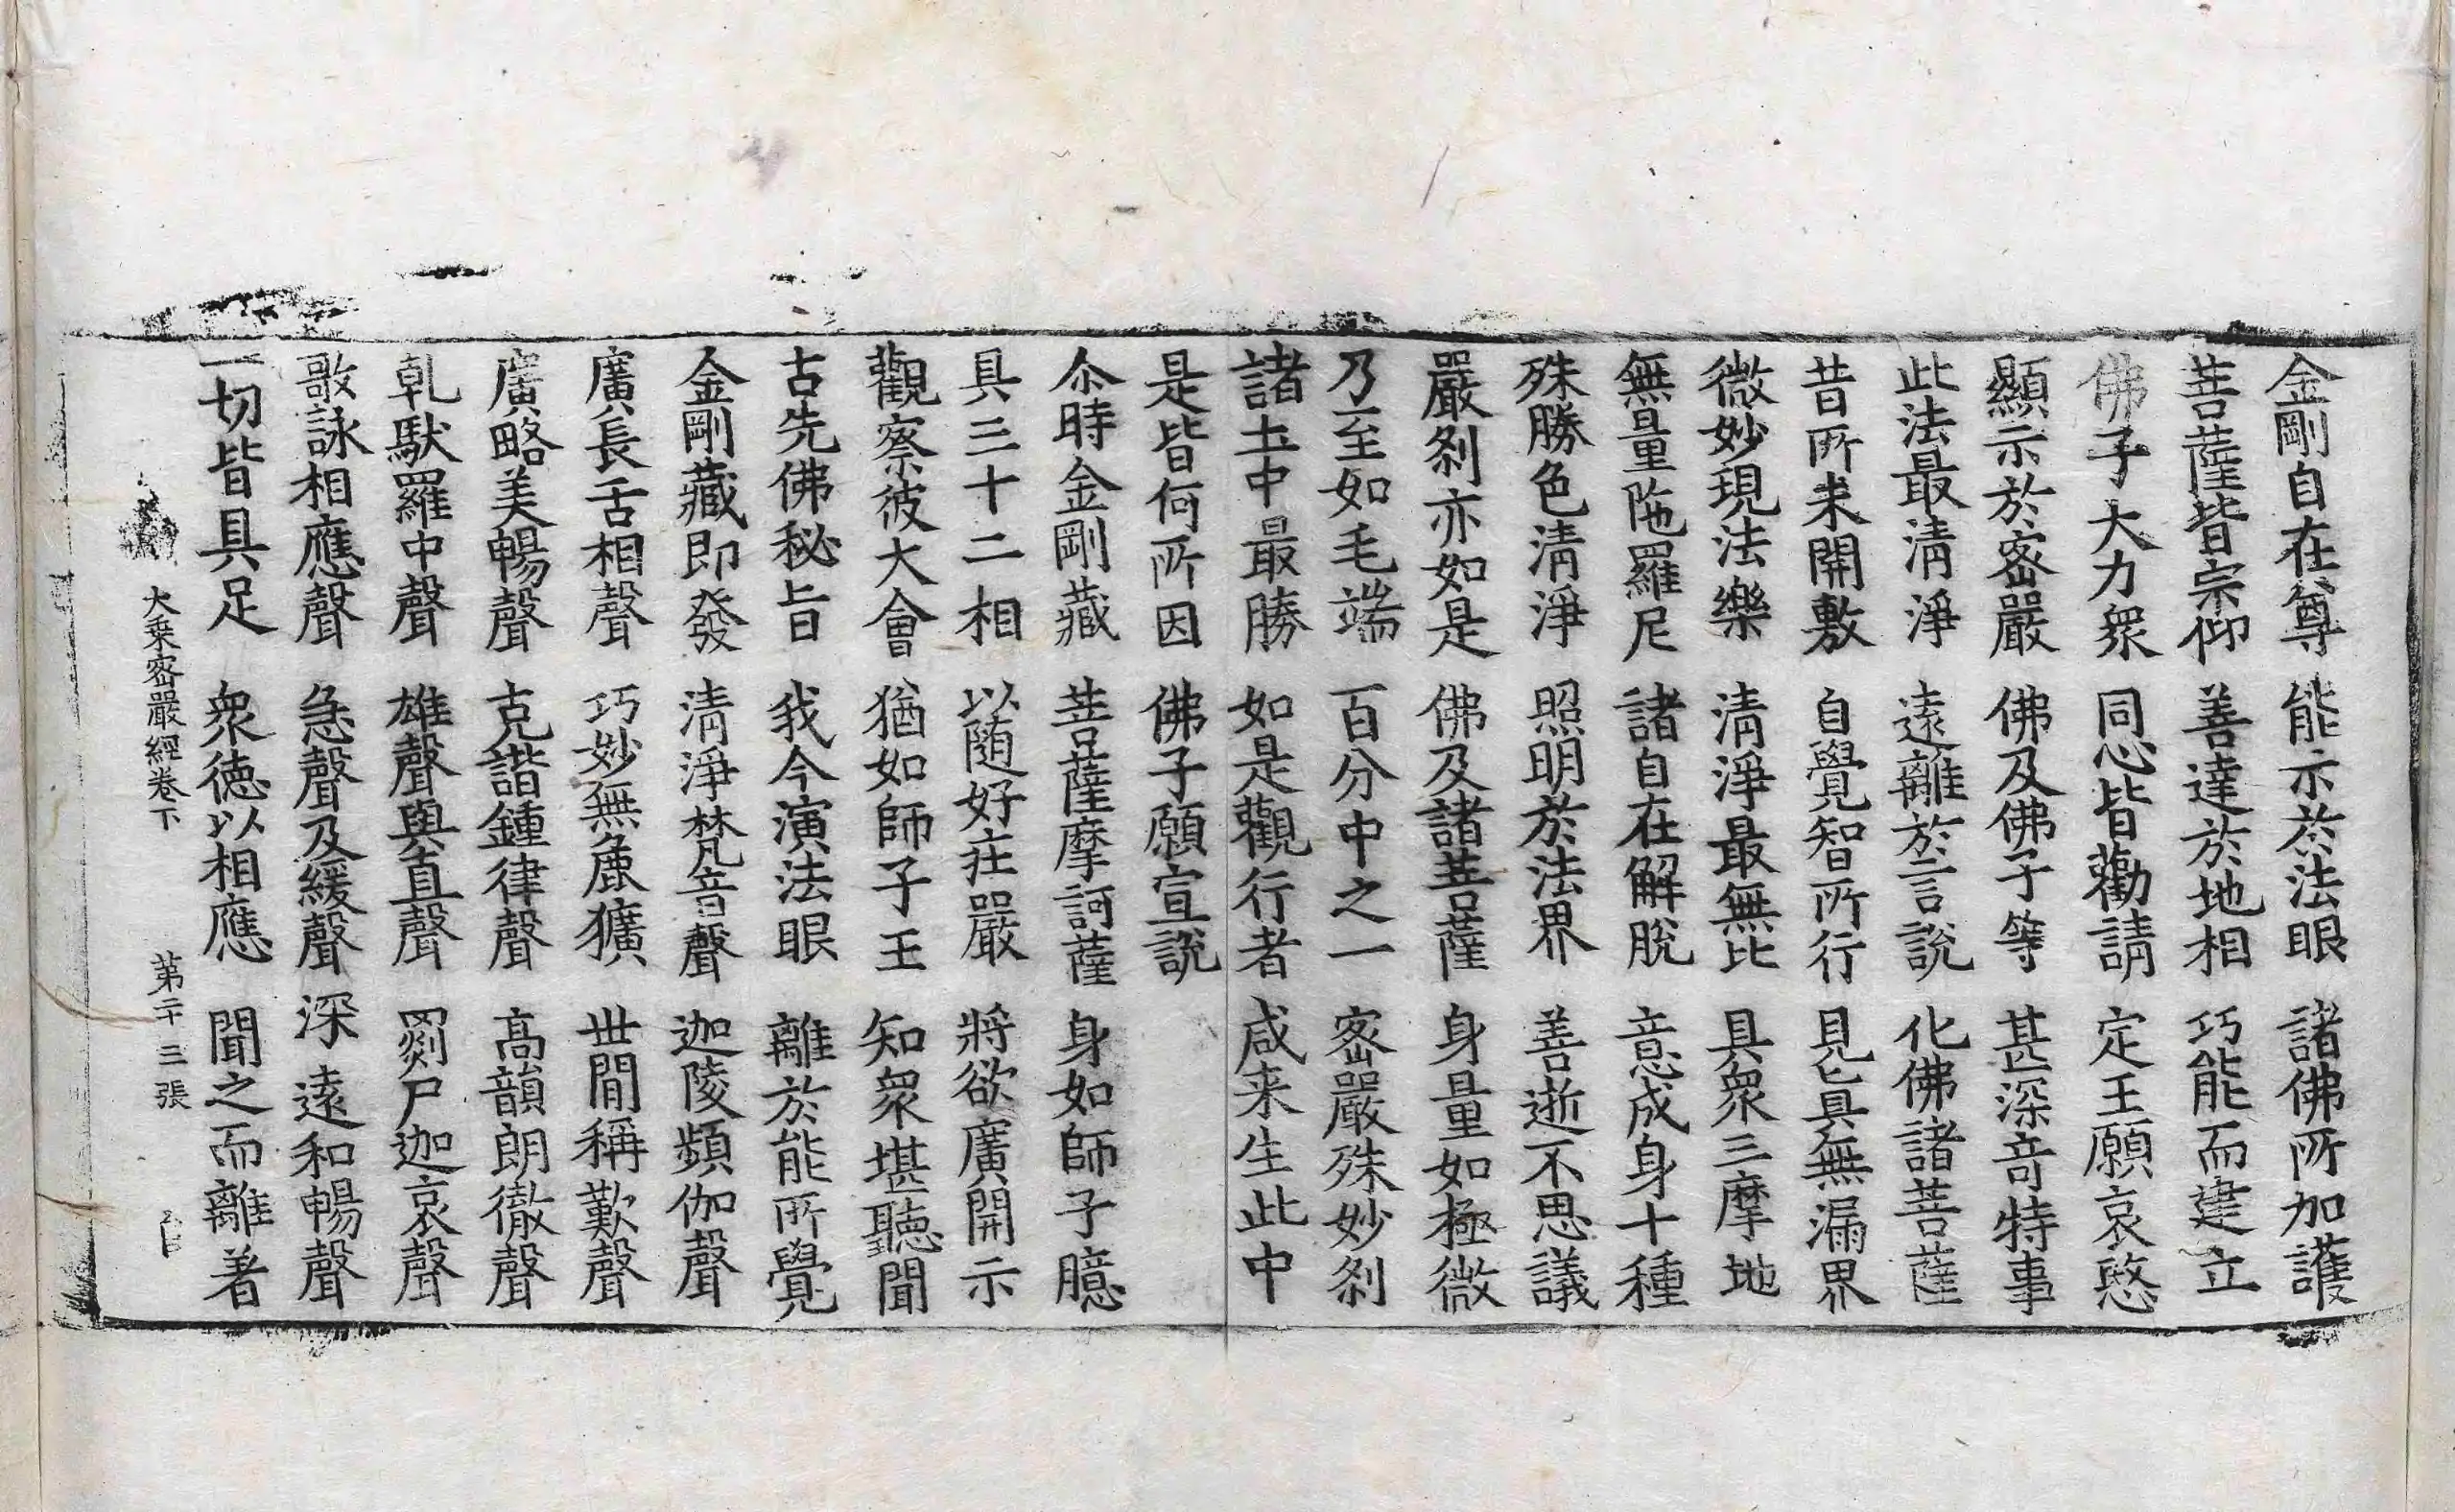 金剛自在尊 能示於法眼 諸佛所加護
菩薩皆宗仰 善達於地相 巧能而建立
佛子大力衆 同心皆勸請 定王願哀愍
顯示於密嚴 佛及佛子等 甚深竒特事
此法最清淨 遠離於言說 化佛諸菩薩
昔所未開敷 自覺智所行 見真無漏界
微妙現法樂 清淨最無比 具衆三摩地
無量陁羅尼 諸自在解脫 意成身十種
殊勝色清淨 照明於法界 善逝不思議
嚴刹亦如是 佛及諸菩薩 身量如極微
乃至如毛端 百分中之一 密嚴殊妙刹
諸土中最勝 如是觀行者 咸来生此中
是皆何所因 佛子願宣說
尒時金剛藏 菩薩摩訶薩 身如師子臆
具三十二相 以随好莊嚴 將欲廣開示
觀察彼大會 猶如師子王 知衆堪聽聞
古先佛秘旨 我今演法眼 離於能所覺
金剛藏即發 清淨梵音聲 迦陵頻伽聲
廣長舌相聲 巧妙無麁獷 世間稱歎聲
廣略美暢聲 克諧鍾律聲 高韻朗徹聲
乹馱羅中聲 雄聲與直聲 罽尸迦哀聲
歌詠相應聲 急聲及緩聲 深遠和暢聲
一切皆具足 衆德以相應 聞之而離著
大乘密嚴經卷下 第二十三張